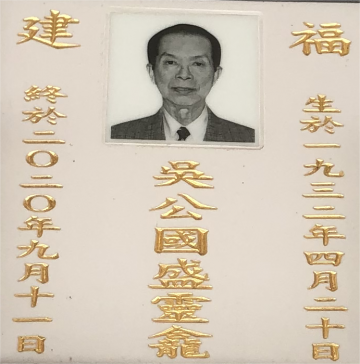 福建
生於一九三二年四月二十日
吳公國盛靈龕
終於二〇二〇年九月十一日